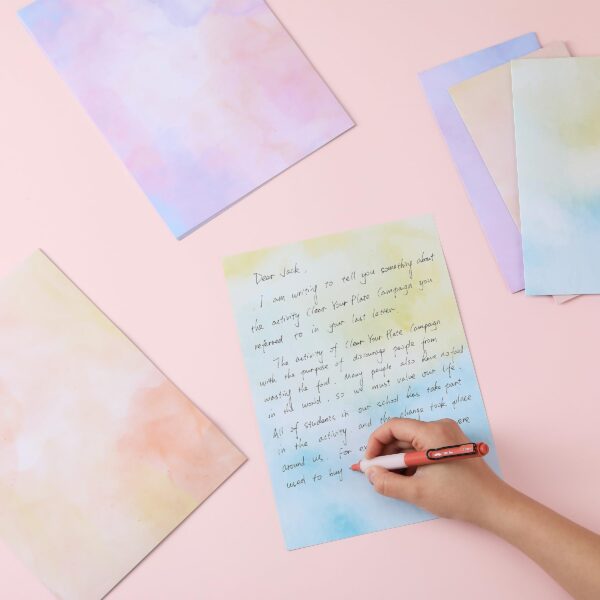 Dear Jack,
I am writing to tell you something about
the activity Clear Your Plate Campaign you
referred to in your last letter.
The activity of Clear Your Plate Campaign
with the purpose of discourage people from
wasting the food. Many people also have no food
in our world. so we must value our life.
All of students in our school has take part
in the activity and the change took place
around us. For ere
used to buy